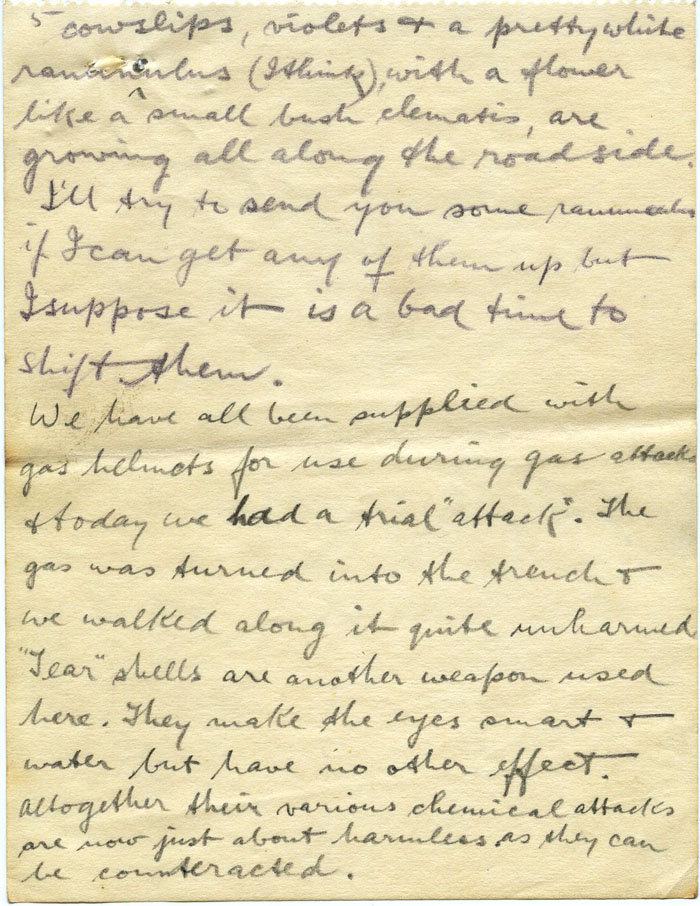 5 cowslips, violets & a pretty white
ranunculus (I think), with a flower
like a small bush clematis, are
growing all along the roadside.
I'll try to send you some ranunculus
if I can get any of them up but
I suppose it is a bad time to
shift them.
We have all been supplied with
gas helmets for use during gas attacks
& today we had a trial "attack". The
gas was turned into the trench &
we walked along it quite unharmed
"Tear" shells are another weapon used
here. They make the eyes smart &
water but have no other effect.
Altogether their various chemical attacks
are now just about harmless as they can
be counteracted.